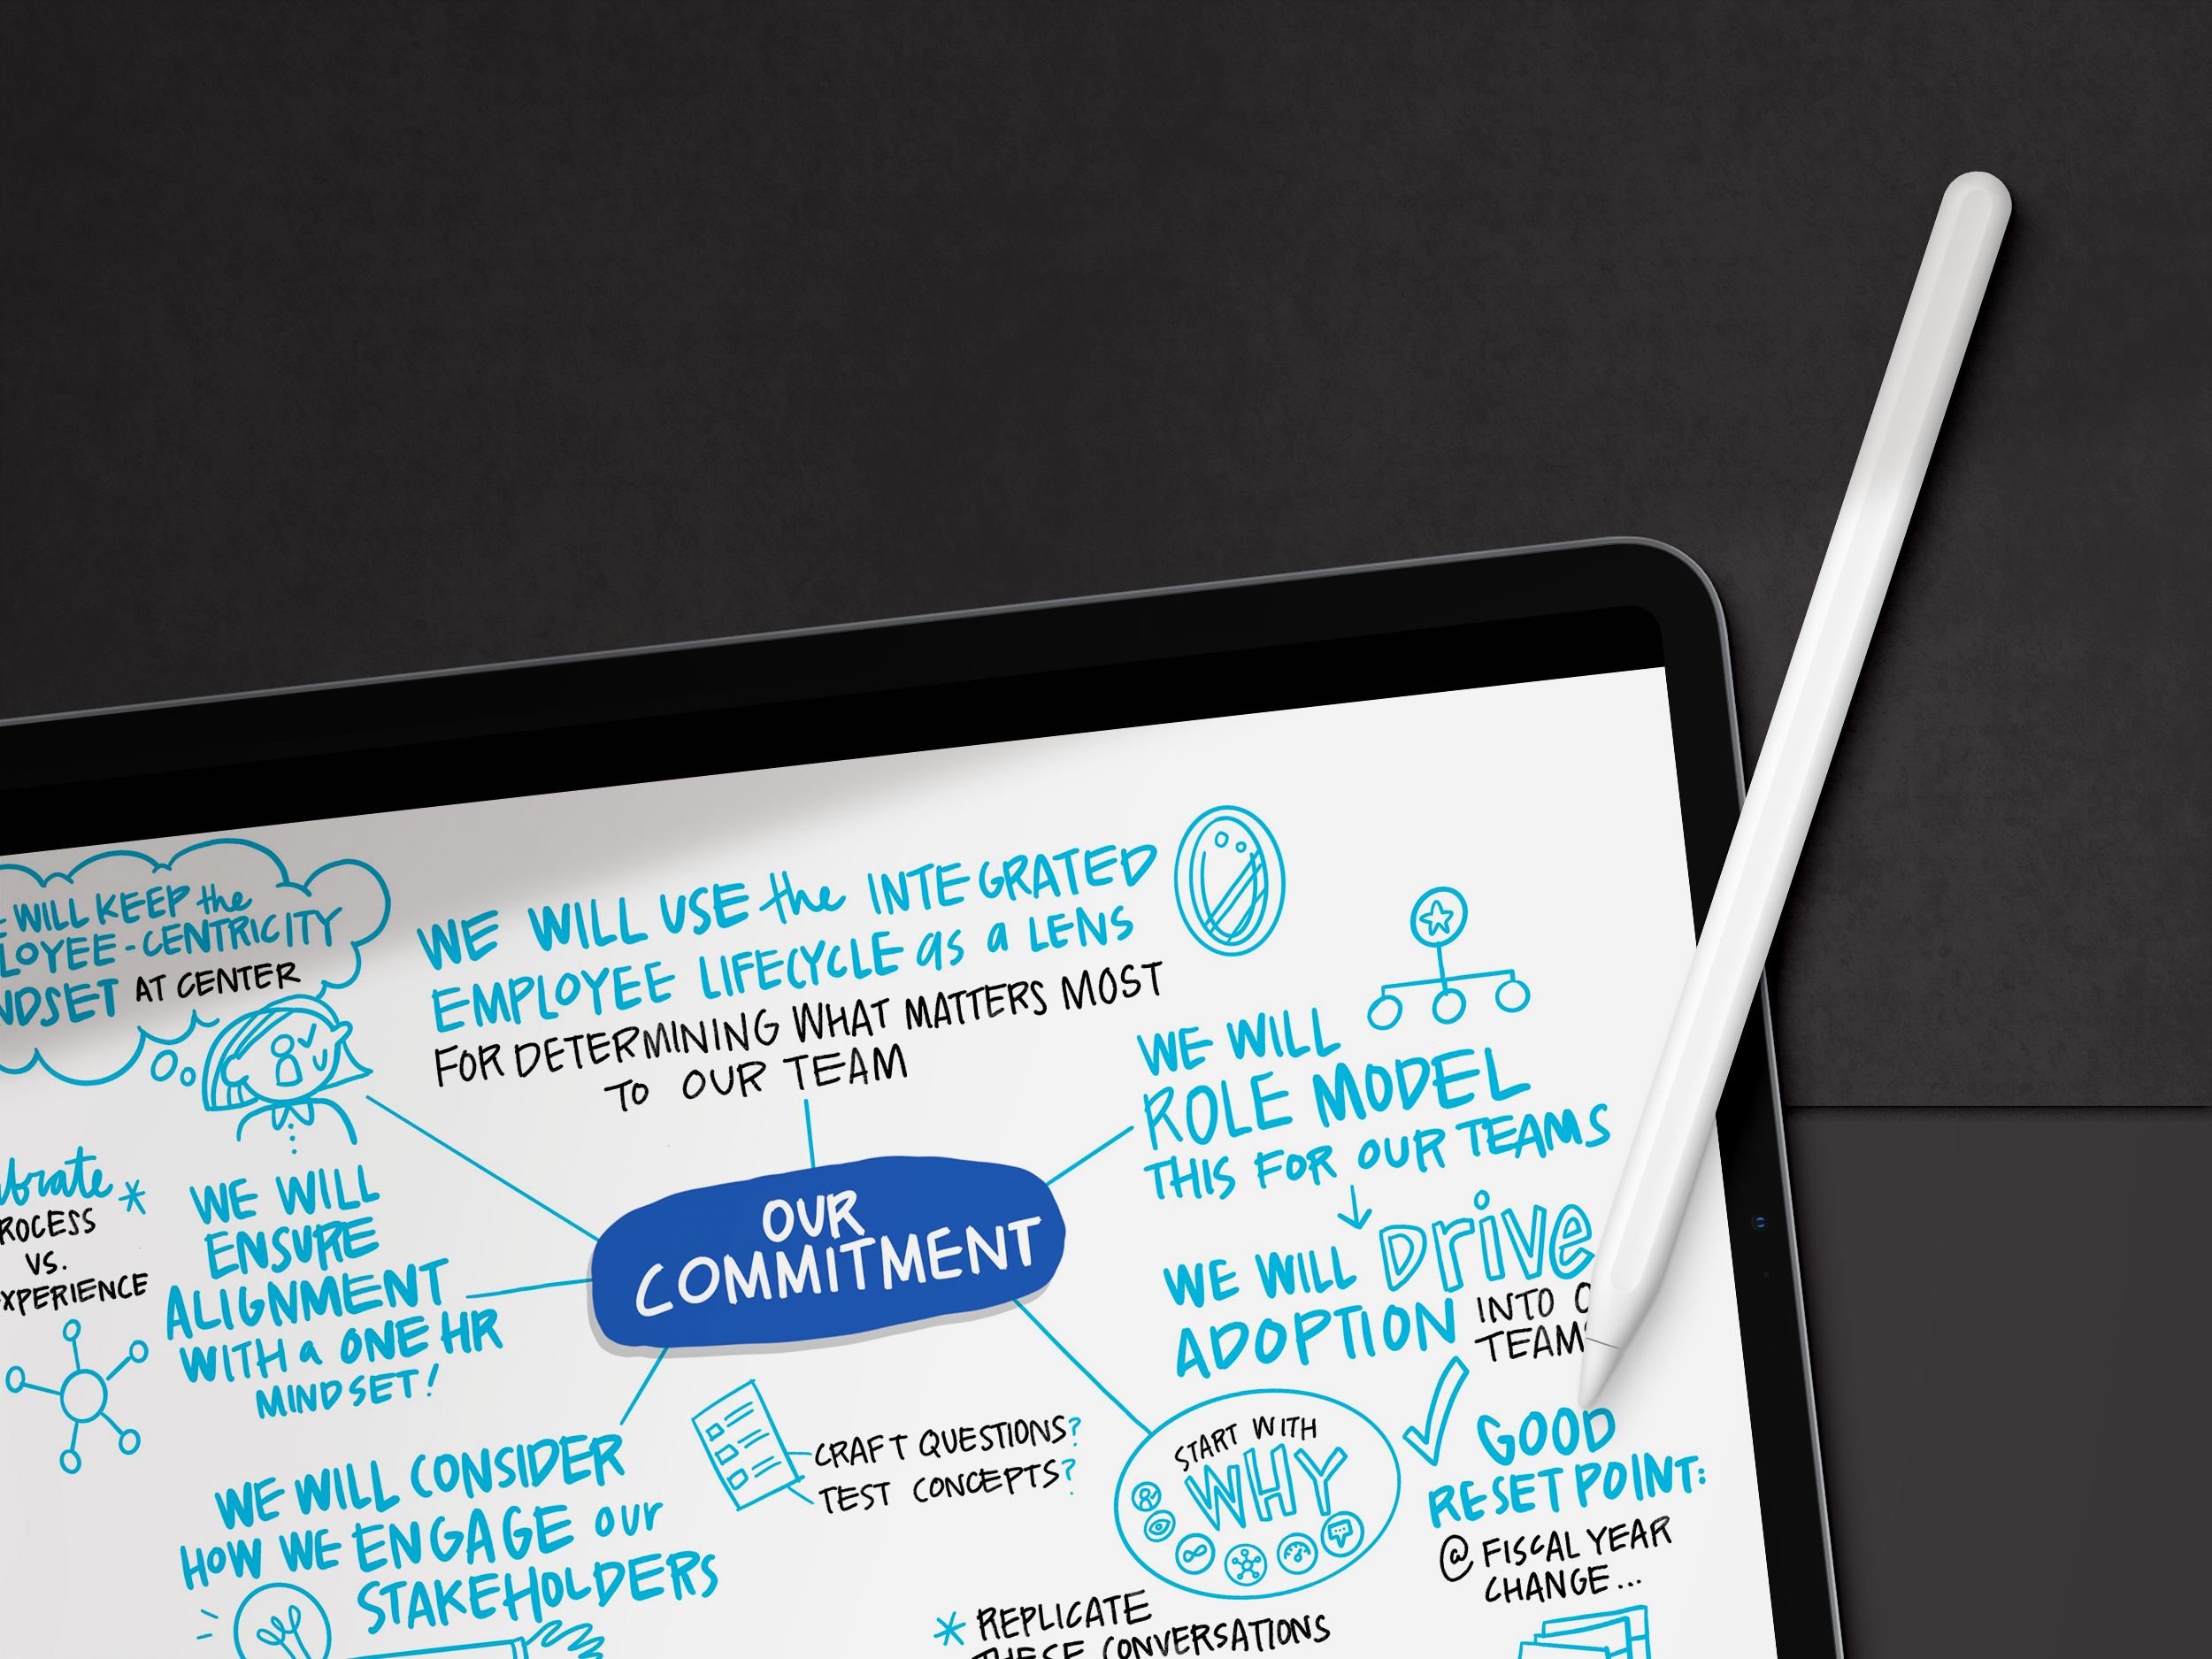 WILL KEEP the
-CENTRICITY
AT CENTER
WE WILL USE the INTEGRATED
EMPLOYEE LIFECYCLE as a LENS
FOR DETERMINING WHAT MATTERS MOST
TO OUR TEAM
WE WILL
ROLE MODEL
THIS FOR OUR TEAMS
WE WILL Drive
ADOPTION INTO
TEAM
OUR
COMMITMENT
*
VS.
WE WILL
ENSURE
ALIGNMENT
WITH a ONE HR
MINDSET!
WE WILL CONSIDER
HOW WE ENGAGE our
STAKEHOLDERS
CRAFT QUESTIONS?
TEST CONCEPTS?
START WITH
WHY
GOOD
RESET POINT:
@ FISCAL YEAR
CHANGE...
* REPLICATE
THESE CONVERSATIONS